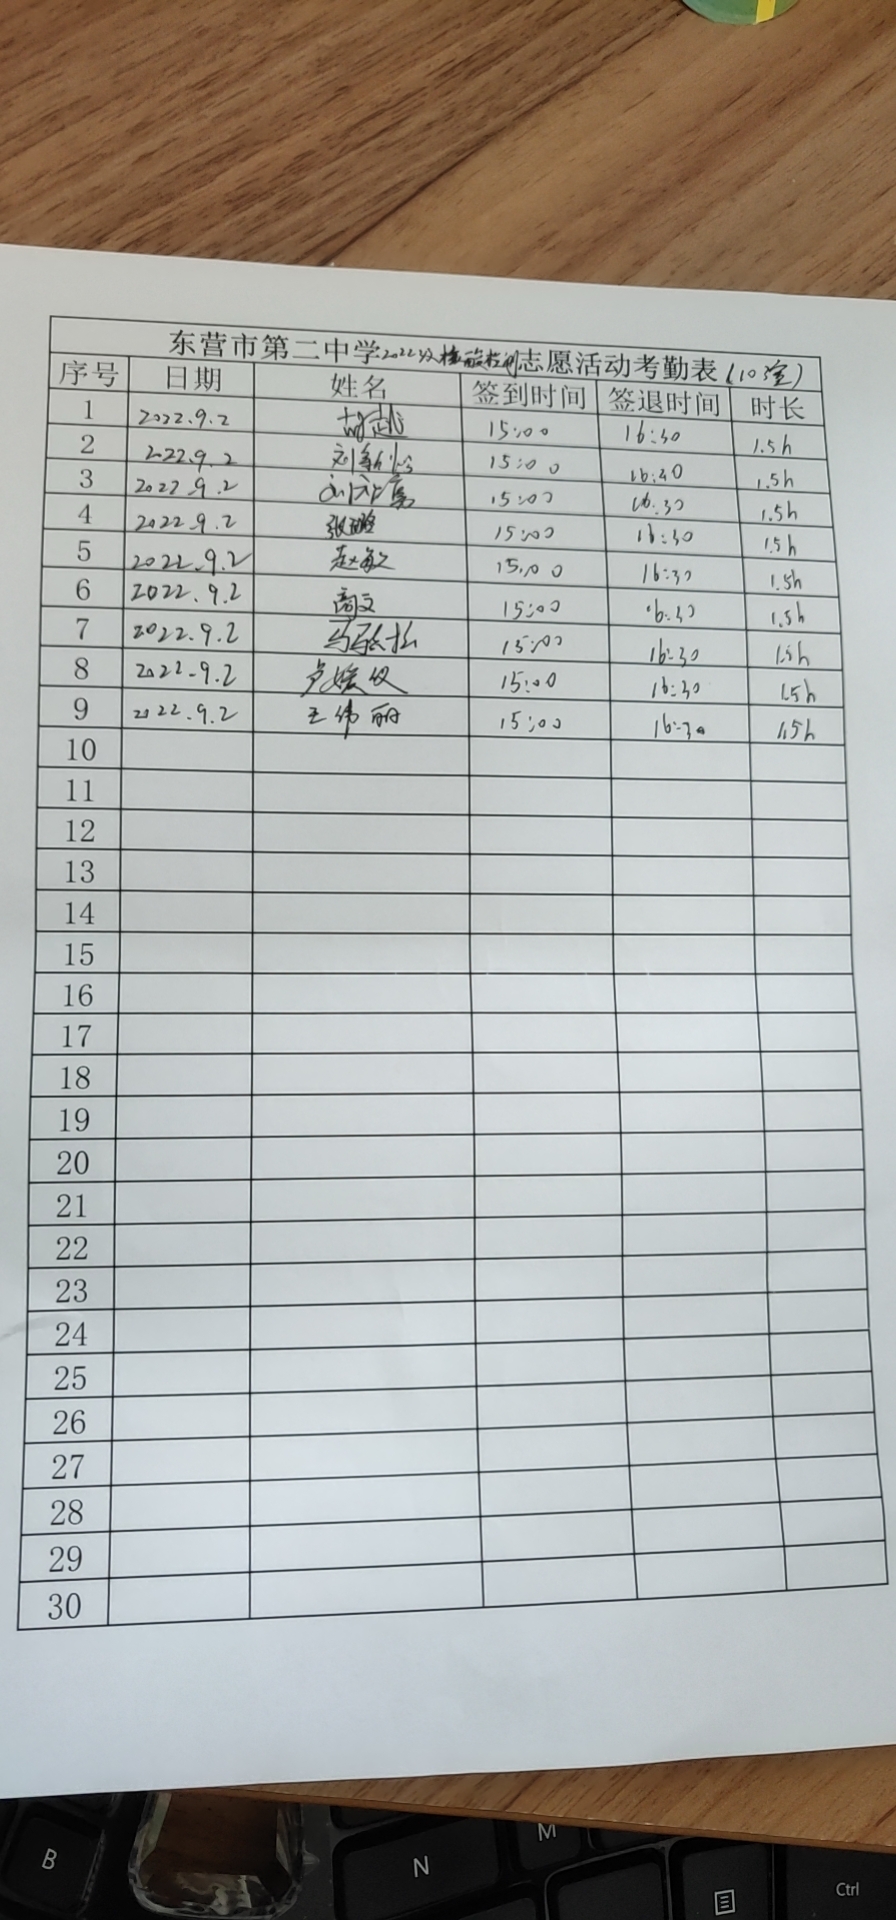 东营市第二中学2022级核酸检测志愿活动考勤表(103室)
序号 日期 姓名 签到时间 签退时间 时长
1 2022.9.2 胡越 15:00 16:30 1.5h
2 2022.9.2 15:00 16:30 1.5h
3 2022.9.2 15:00 16:30 1.5h
4 2022.9.2 张璐 15:00 16:30 1.5h
5 2022.9.2 赵敏 15:00 16:30 1.5h
6 2022.9.2 商文 15:00 16:30 1.5h
7 2022.9.2 15:00 16:30 1.5h
8 2022.9.2 卢媛仪 15:00 16:30 1.5h
9 2022.9.2 王伟丽 15:00 16:30 1.5h
10
11
12
13
14
15
16
17
18
19
20
21
22
23
24
25
26
27
28
29
30
B
N
M
Ctrl